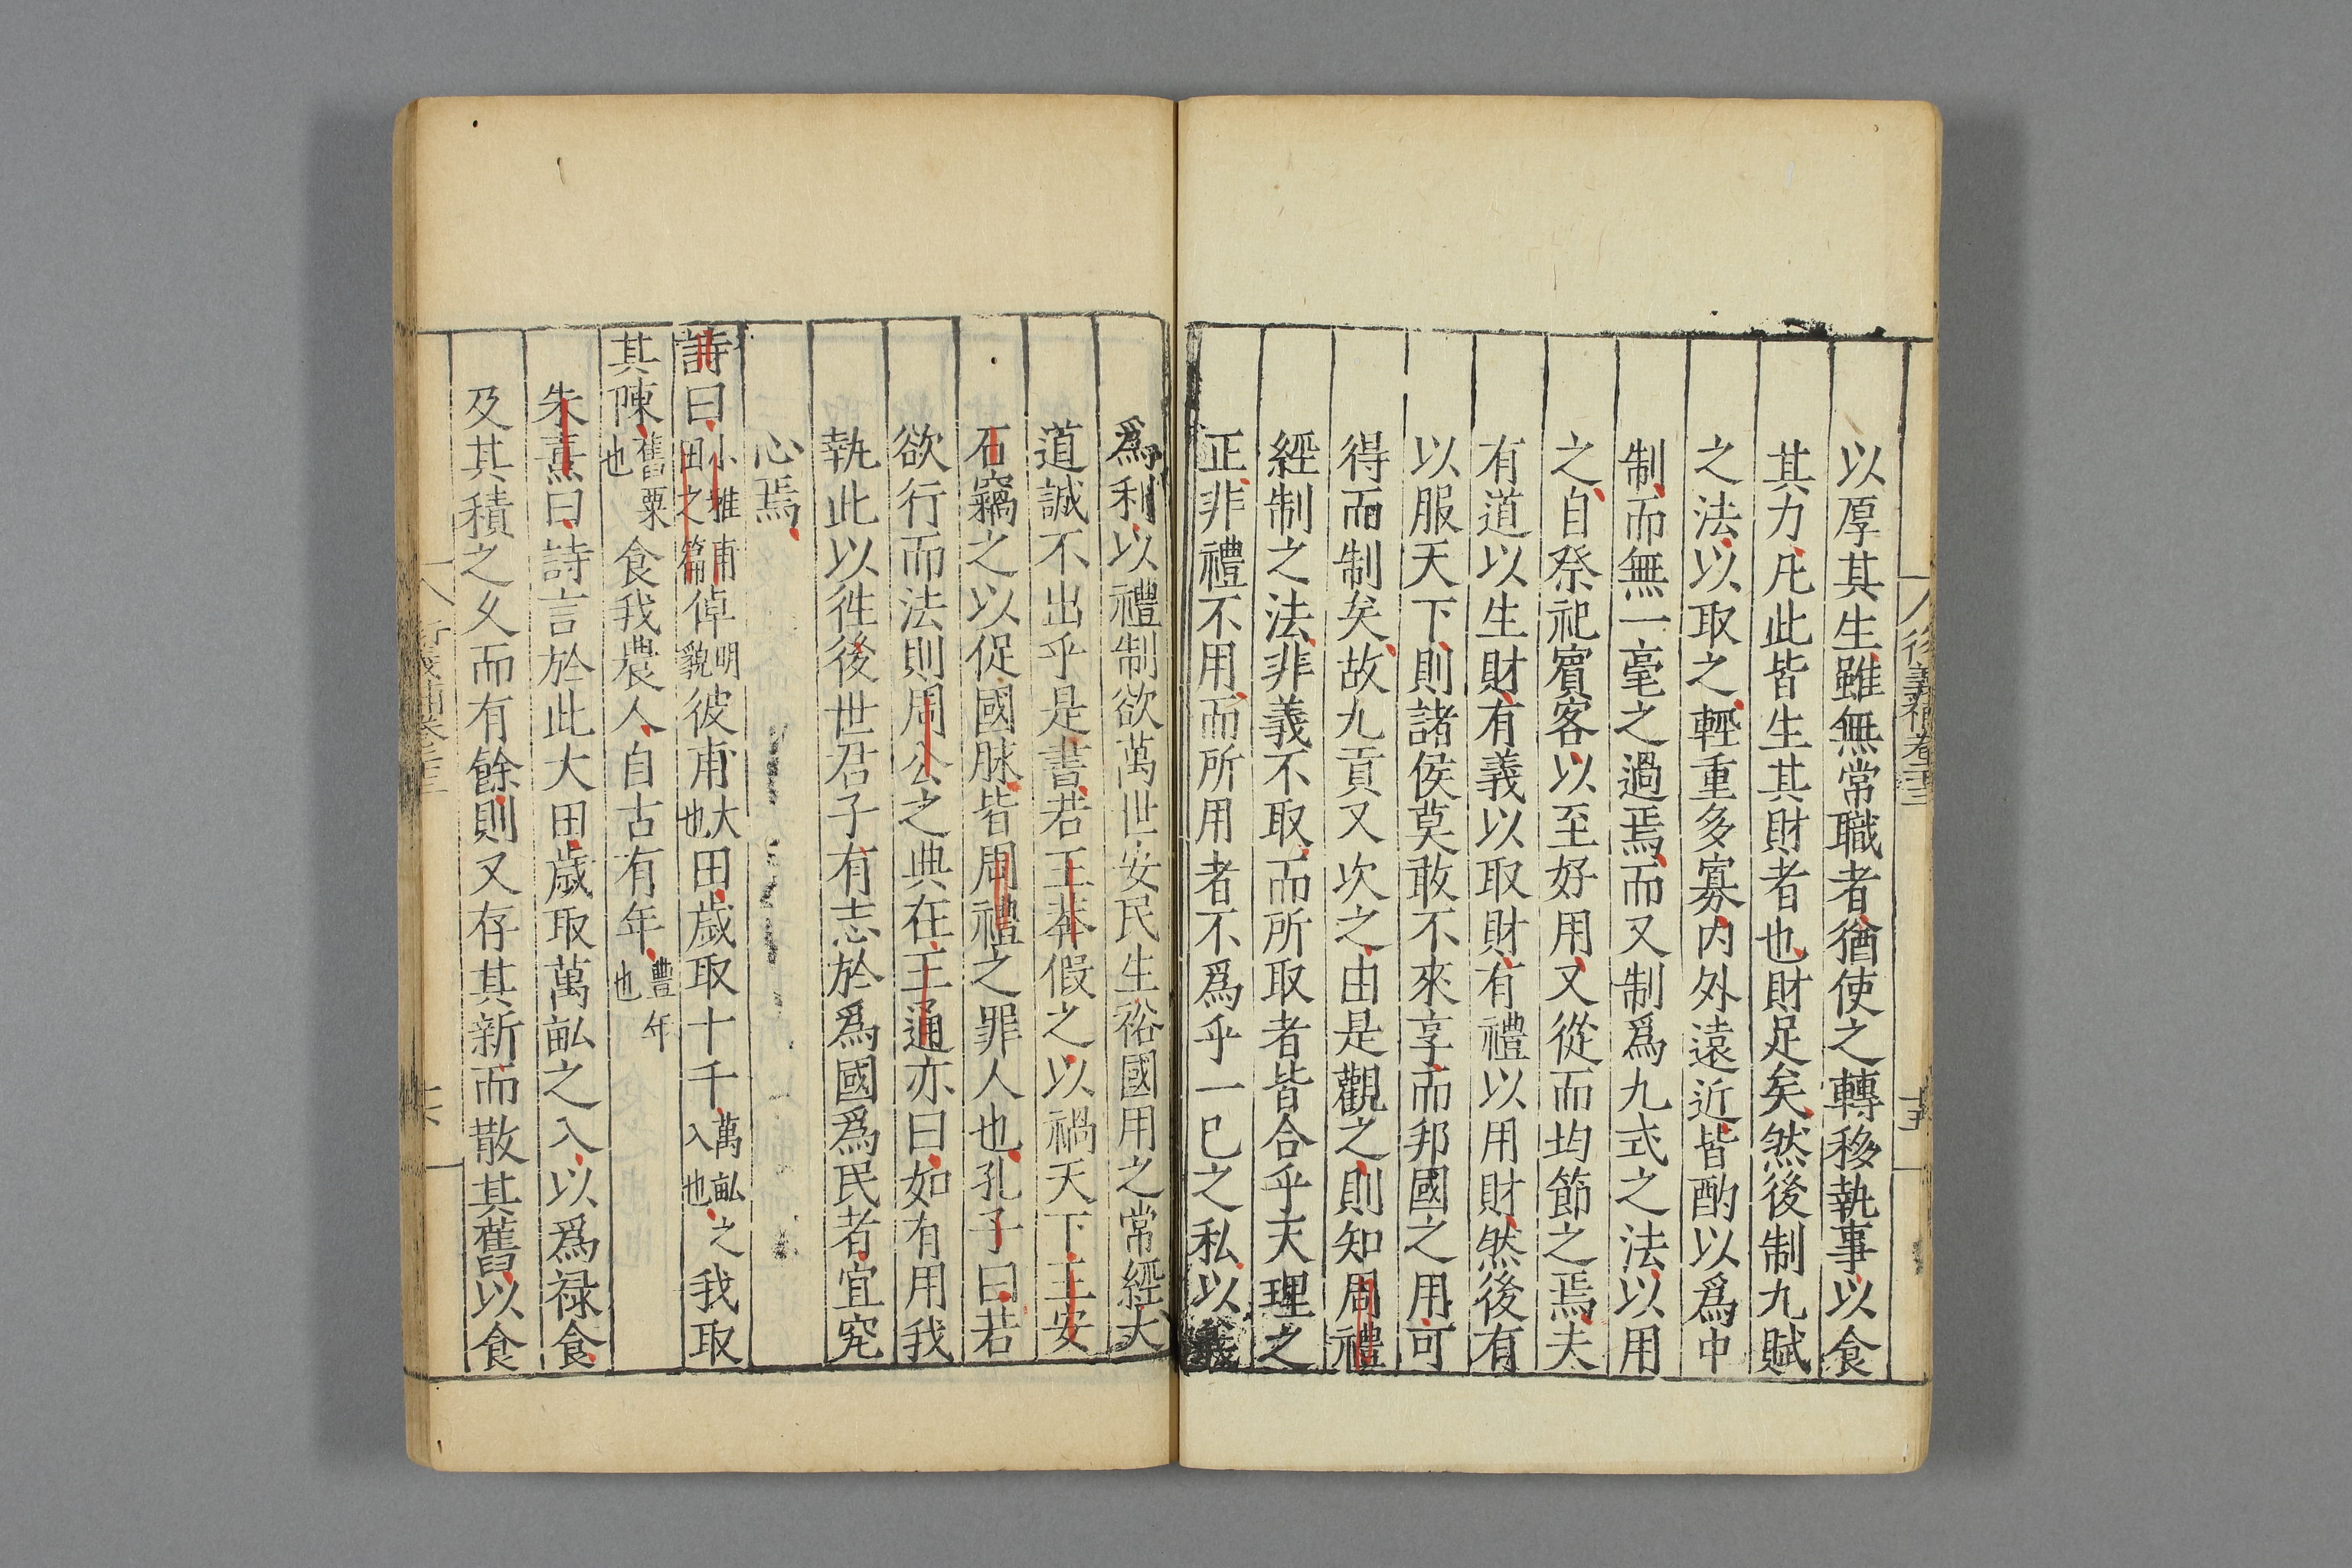 以厚其生雖無常職者猶使之轉移執事以食
其力凡此皆生其財者也財足矣然後制九賦
之法以取之輕重多寡内外遠近皆酌以爲中
制而無一毫之過焉而又制爲九式之法以用
之自祭祀賓客以至好用又從而均節之焉夫
有道以生財有義以取財有禮以用財然後有
以服天下則諸侯莫敢不來享而邦國之用可
得而制矣故九貢又次之由是觀之則知周禮
經制之法非義不取而所取者皆合乎天理之
正非禮不用而所用者不爲乎一己之私以義
爲利以禮制欲萬世安民生裕國用之常經大
道誠不出乎是書若王莽假之以禍天下王安
石竊之以促國脉皆周禮之罪人也孔子曰若
欲行而法則周公之典在王通亦曰如有用我
執此以徃後世君子有志於爲國爲民者宜究
心焉
詩曰小雅甫田之篇倬明貌彼甫大也田歲取十千萬畝之入也我取
其陳舊粟也食我農人自古有年豐年也
朱熹曰詩言於此大田歲取萬畝之入以爲禄食
及其積之乆而有餘則又存其新而散其舊以食